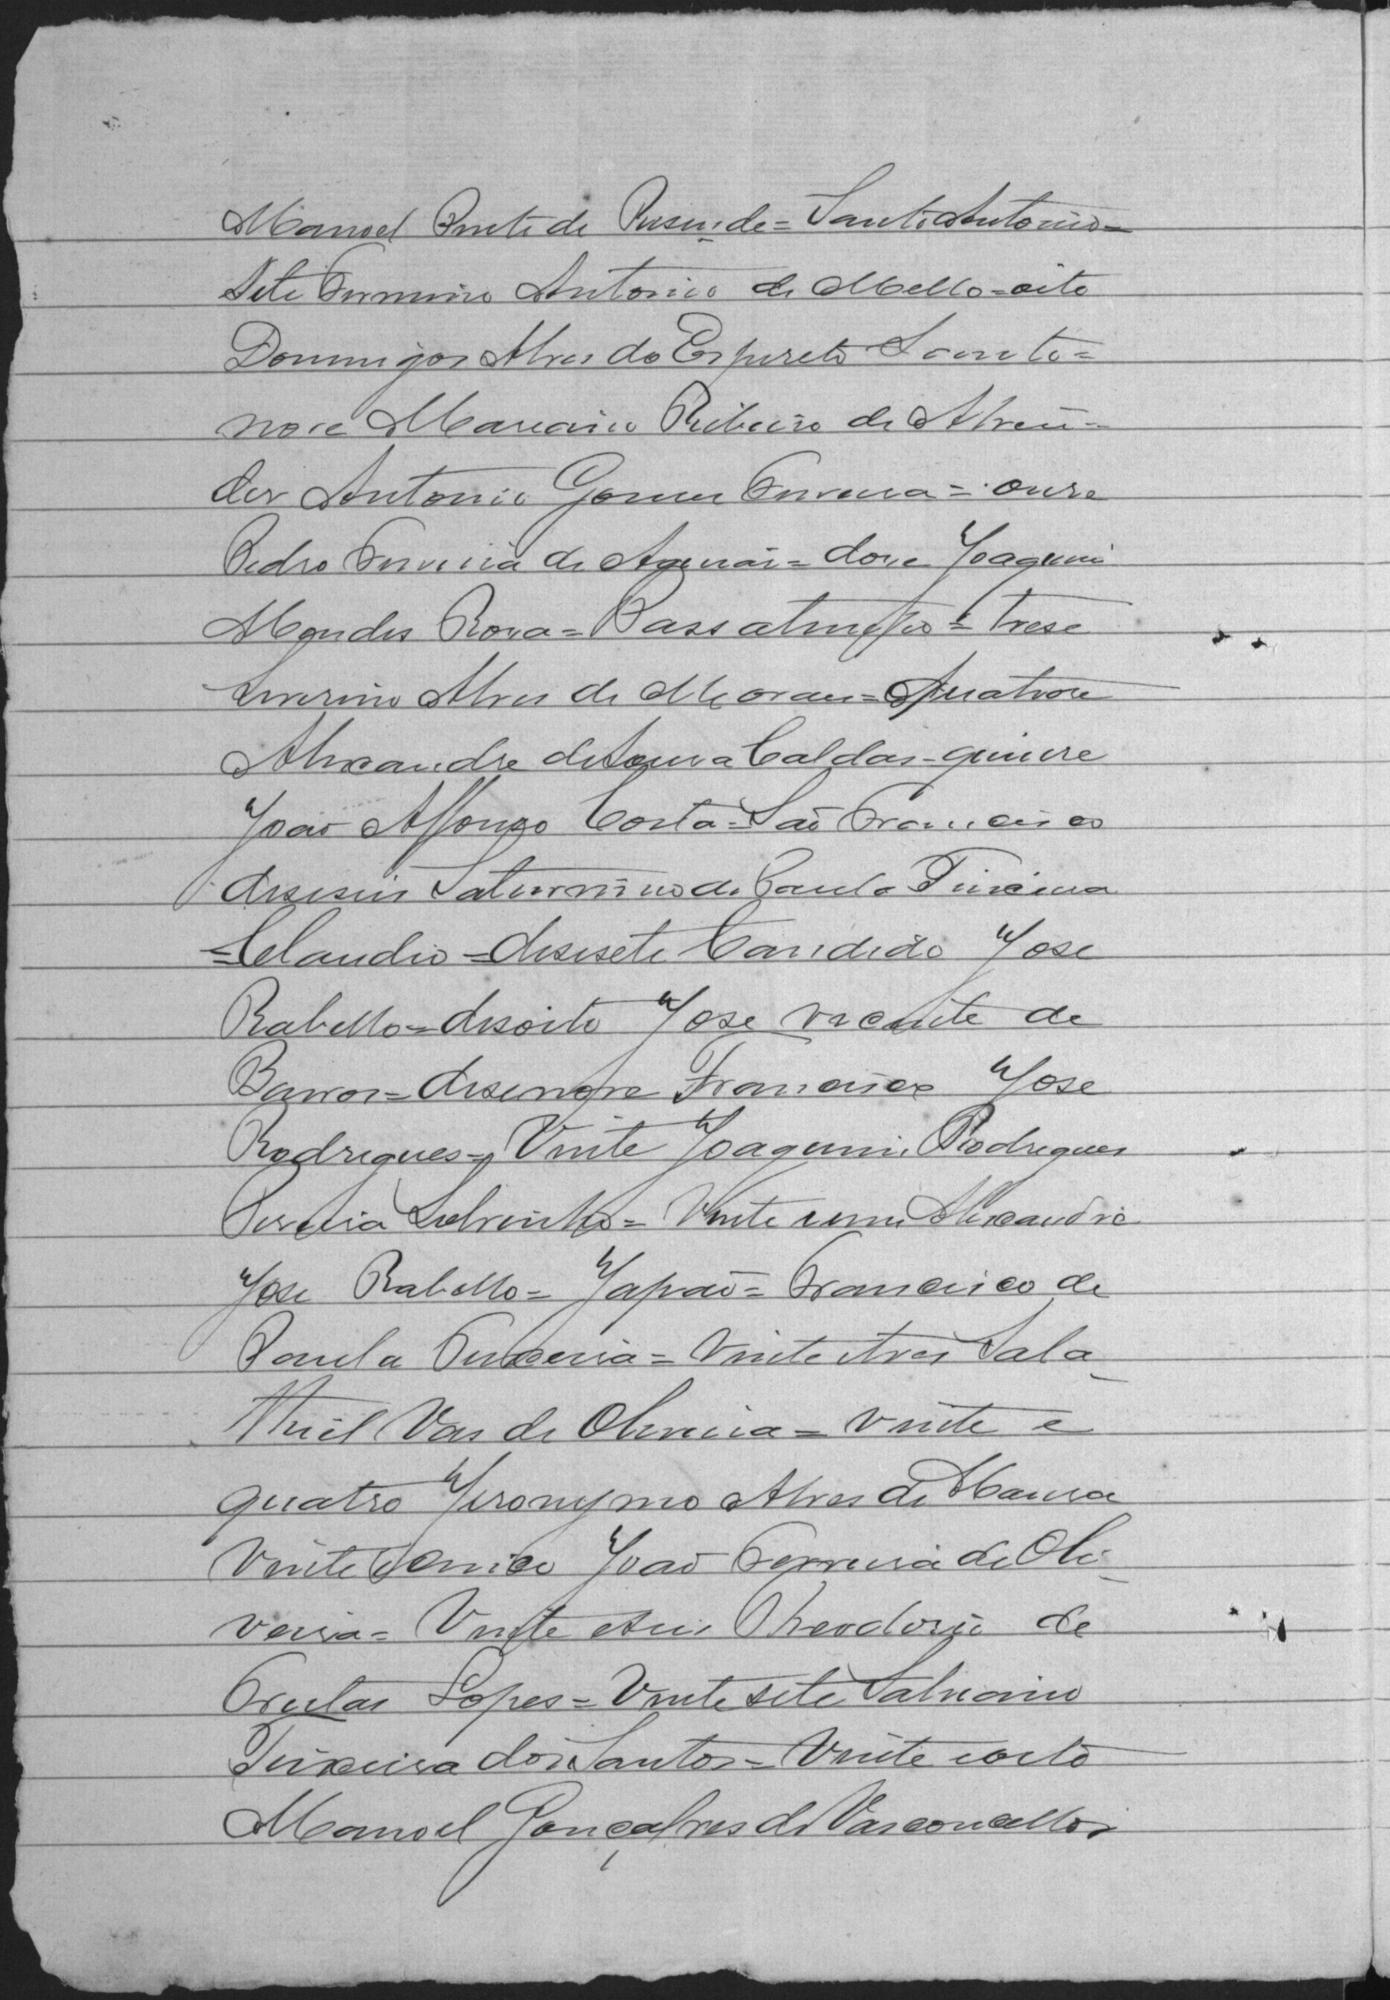 Manoel Prüte de Resende = Santo Antonio =
Sete Firmino Antonio de Mello = oito
Domingos Alves do Espereto Santo =
nove Marciano Ribeiro de Abreu =
des Antonio Gomes Ferreira = onse
Pedro Ferreira de Aguiar = dose Joaquim
Mendes Rosa = Passatempo = trese
Severino Alves de Moraes = Quatrose
Alexandre de Sousa Caldas = quinse
João Affonço Costa = São Francisco
deseseis Saturnino de Paula Teixeira
= Claudio = desesete Candido Jose
Rabello = desoito Jose Vicente de
Barros = desenove Francisco Jose
Rodrigues = Vinte Joaquim Rodrigues
Pereira Sobrinho = Vinte um Alexandre
Jose Rabello = Japão = Francisco de
Paula Teixeira = Vinte e tres Sala
thiel Vas de Oliveira = vinte e
quatro Jeronymo Alves de
Vinte e cinco João Ferreira de Oli-
veira = Vinte e seis Theodorio de
Freitas Lopes = Vinte sete Salviano
Teixeira dos Santos = Vinte e oito
Manoel Gonçalves de Vasconcellos